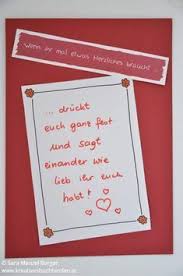 Wenn ihr mal etwas Herzliches braucht
... drückt
euch ganz fest
und sagt
einander wie
lieb ihr euch
habt!
© Sara Menzel-Berger